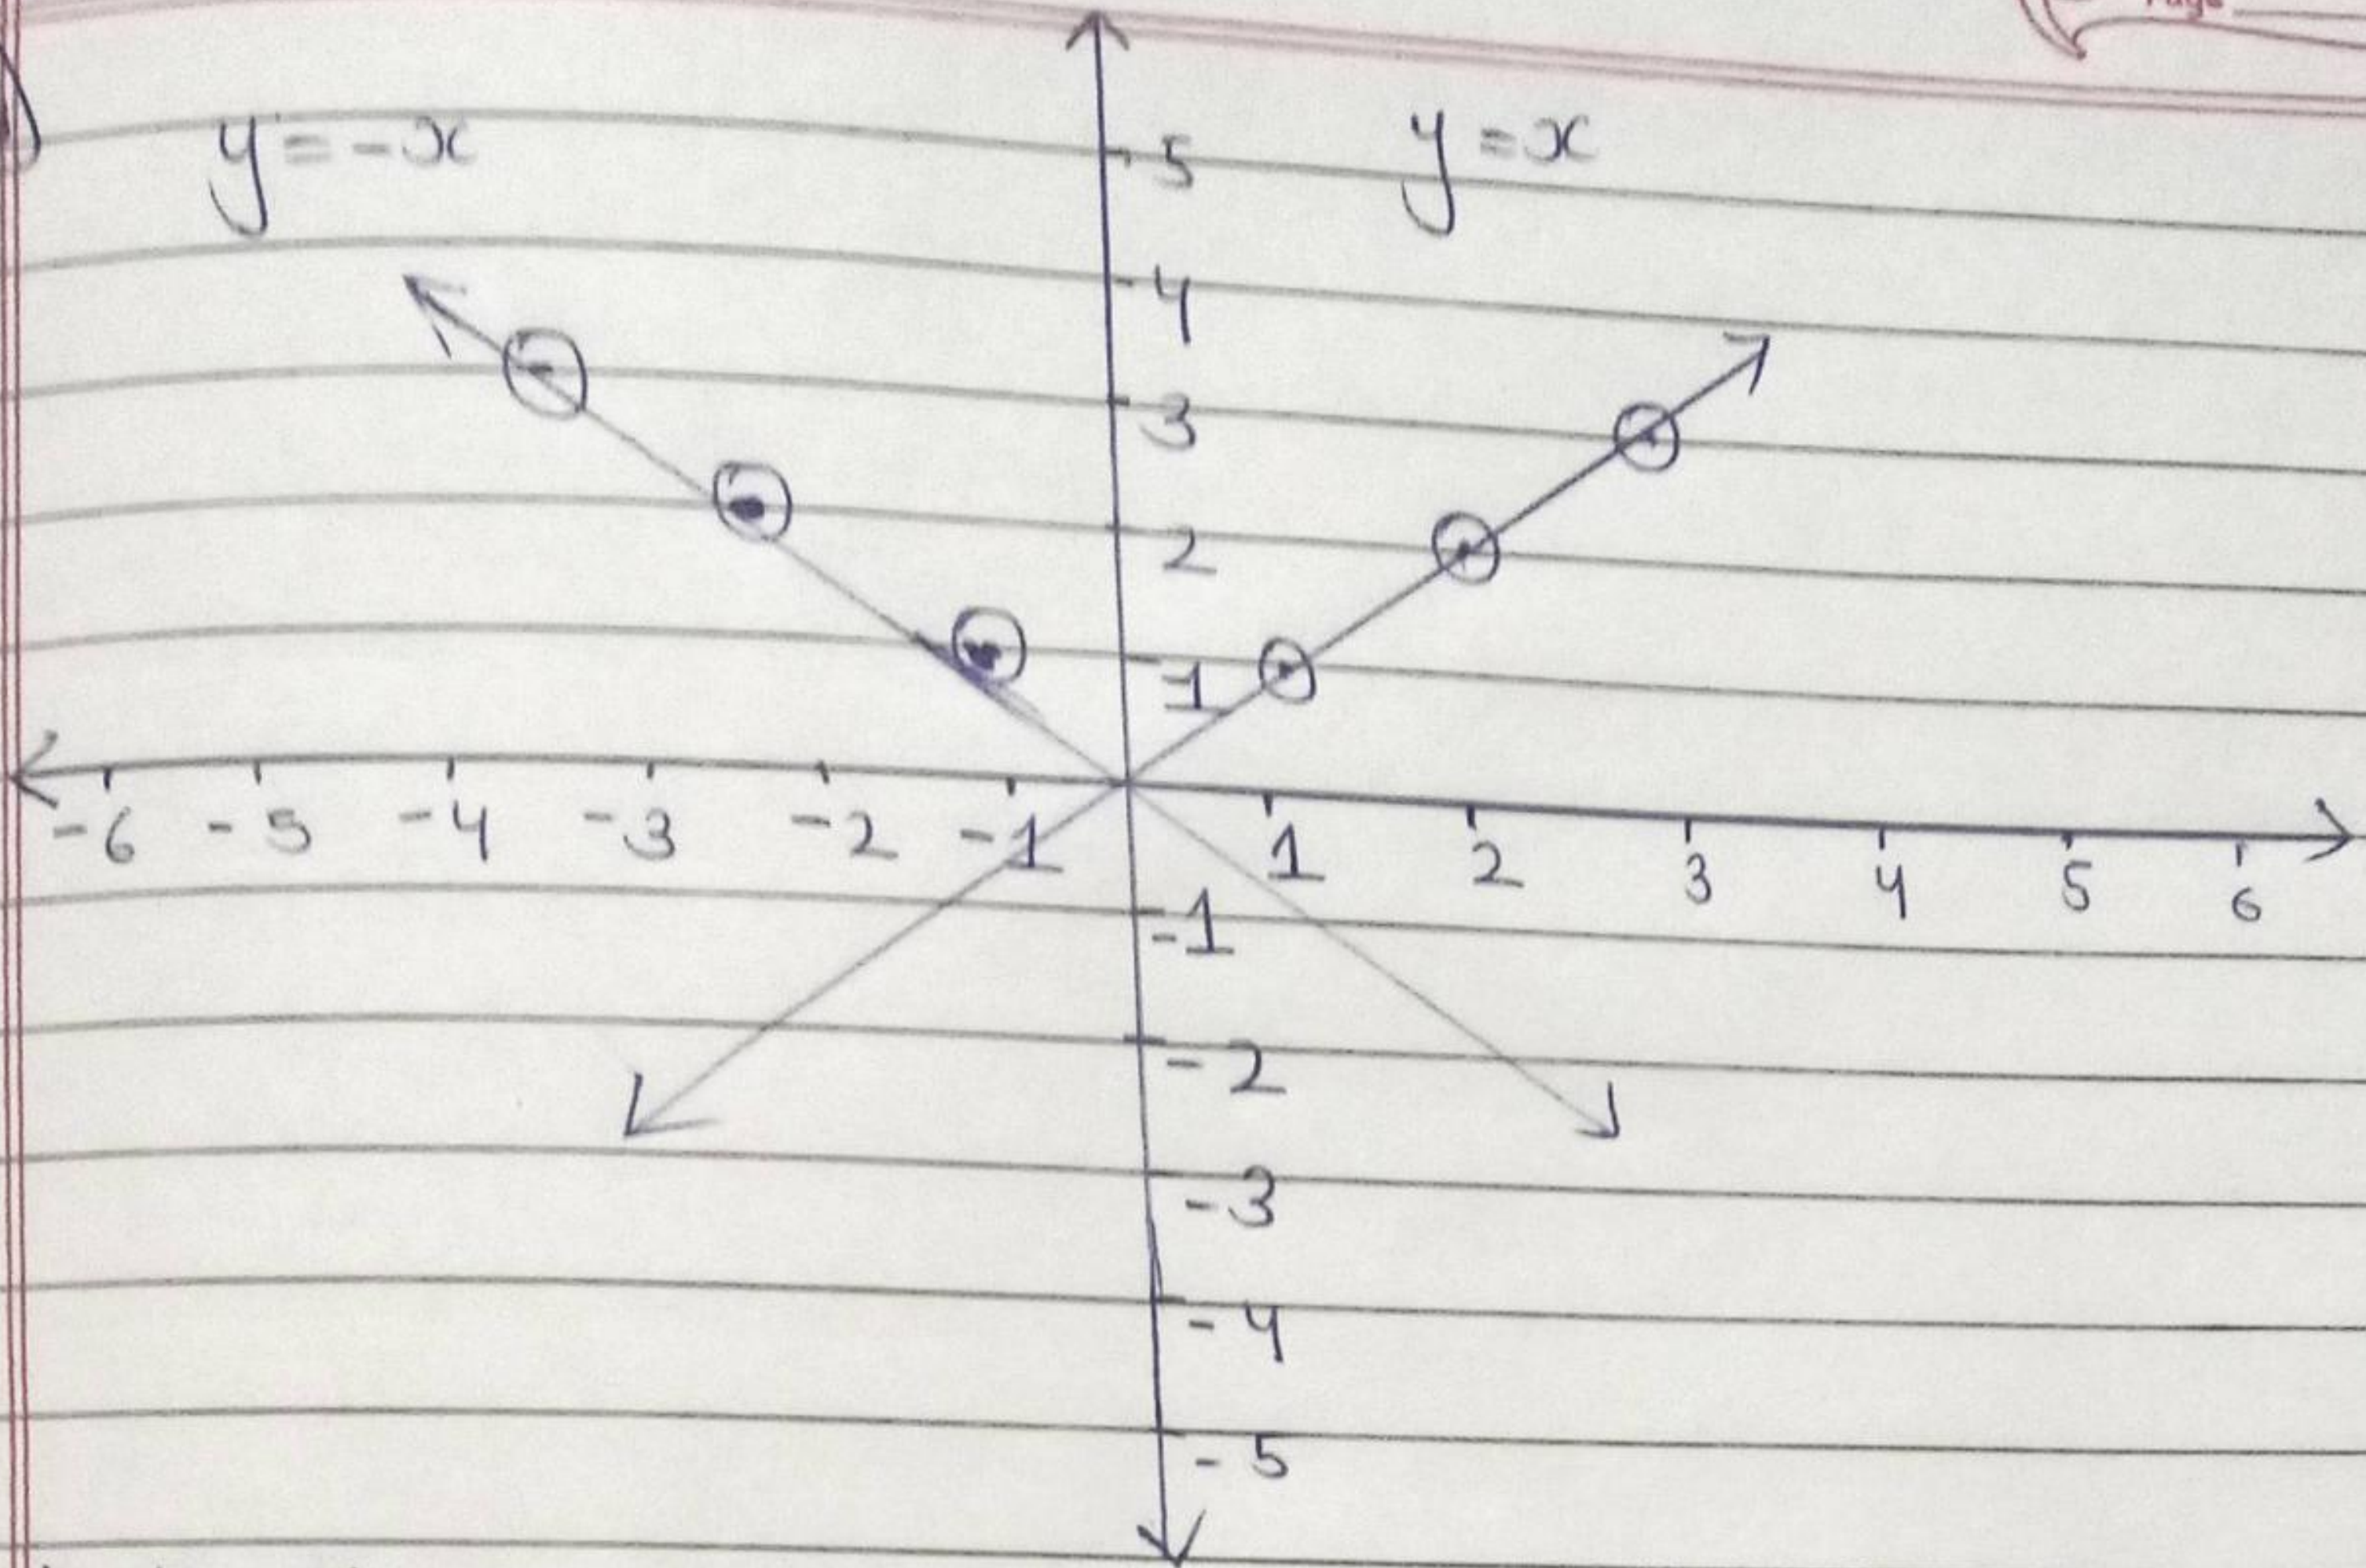 Page
y = -x
y = x
5
4
3
2
1
-6 -5 -4 -3 -2 -1 1 2 3 4 5 6
-1
-2
-3
-4
-5